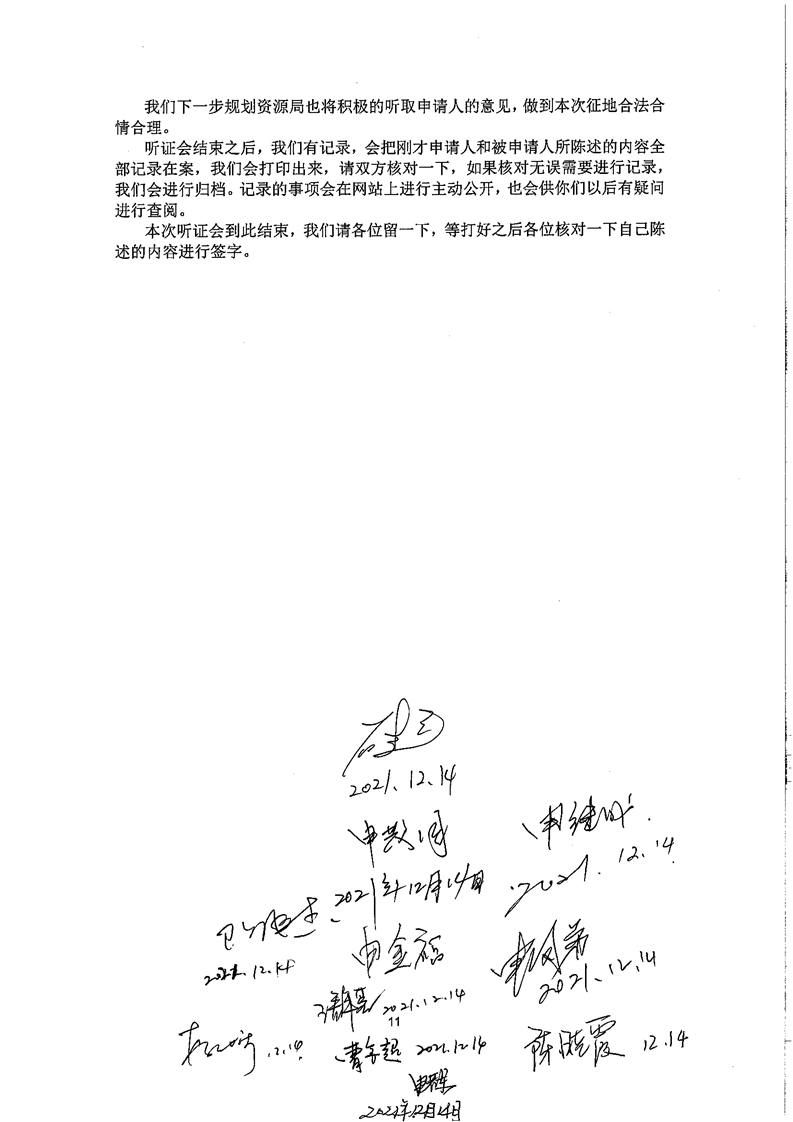 我们下一步规划资源局也将积极的听取申请人的意见，做到本次征地合法合
情合理。
听证会结束之后，我们有记录，会把刚才申请人和被申请人所陈述的内容全
部记录在案，我们会打印出来，请双方核对一下，如果核对无误需要进行记录，
我们会进行归档。记录的事项会在网站上进行主动公开，也会供你们以后有疑问
进行查阅。
本次听证会到此结束，我们请各位留一下，等打好之后各位核对一下自己陈
述的内容进行签字。
2021.12.14
2021.12.14
2021年12月14日
申金福
2021.12.14
2021.12.14
2021.12.14
12.14
2021.12.14
陈晓霞 12.14
2021年12月14日